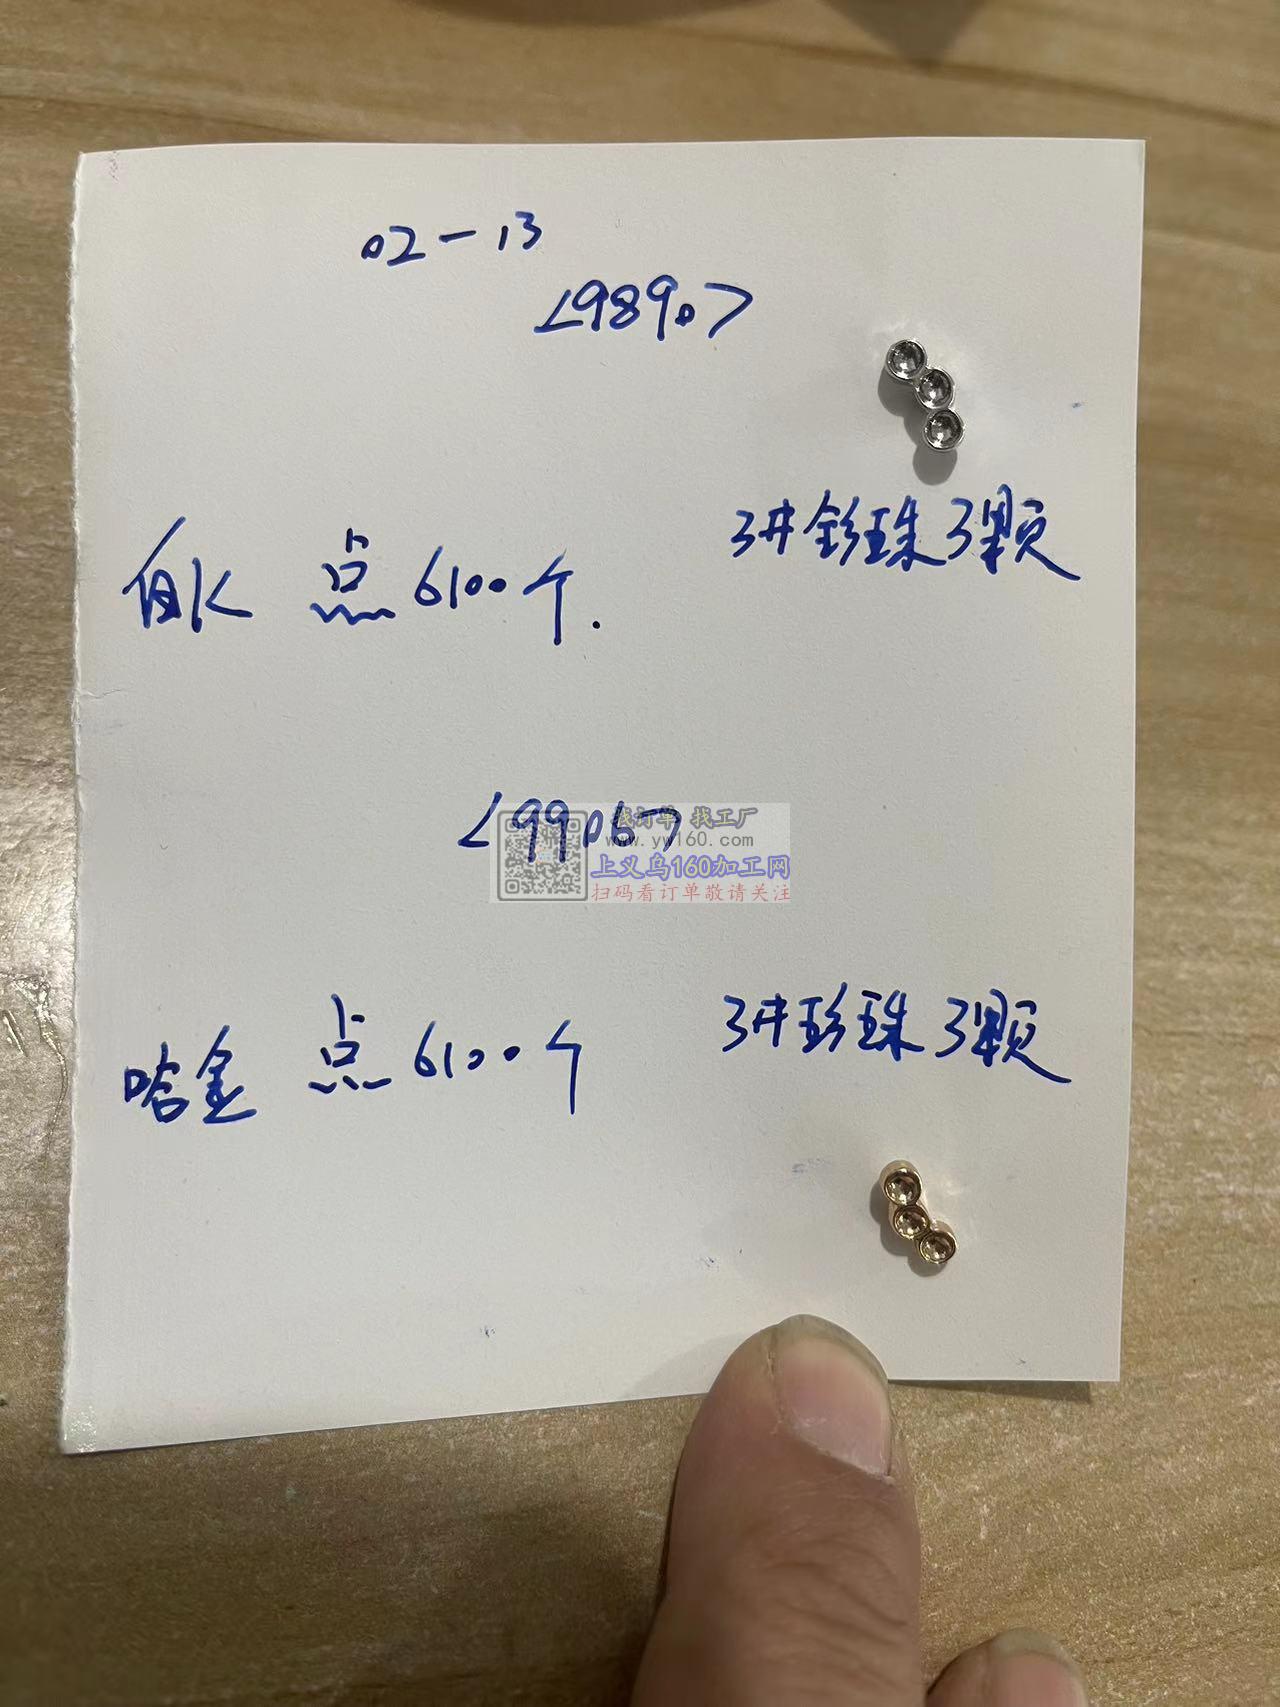 02-13
<9890>
3井珍珠3颗
白K 点6100个.
<9906>
找订单 找工厂
www.yw160.com
上义乌160加工网
扫码看订单敬请关注
3井珍珠3颗
哈金 点6100个